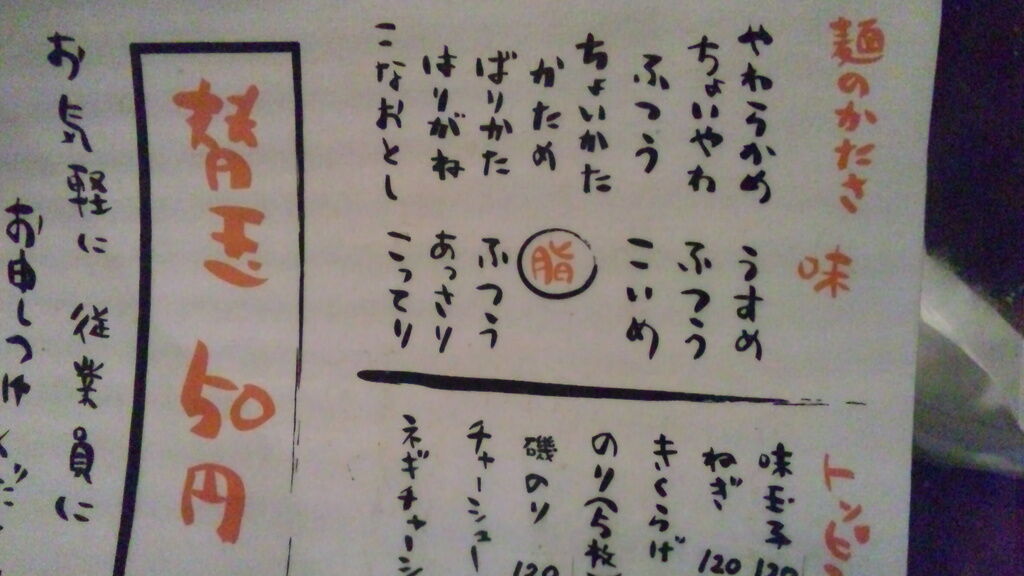 麺のかたさ
やわらかめ
ちょいやわ
ふつう
ちょいかた
かため
ばりかた
はりがね
こなおとし
味
うすめ
ふつう
こいめ
脂
ふつう
あっさり
こってり
味玉子 120
ねぎ 120
きくらげ
のり(5枚
磯のり 120
チャーシュー
ネギチャーシ
替玉 50円
お気軽に 従業員に
お申しつけ